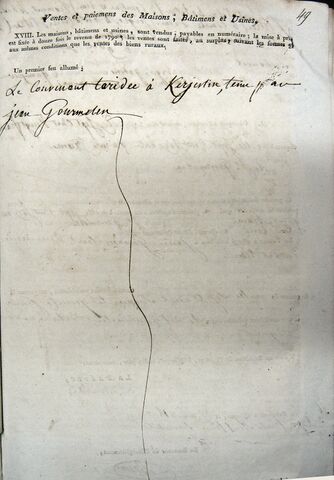 49
Ventes et paiemens des Maisons, Bâtimens et Usines.
XVIII. Les maisons, bâtimens et usines, sont vendus, payables en numéraire; la mise à prix
est fixée à douze fois le revenu de 1790; les ventes sont faites, au surplus, suivant les formes et
aux mêmes conditions que les ventes des biens ruraux.
Un premier feu allumé;
Le Convenant à Kerjestin tenu par
jean Gourmelen